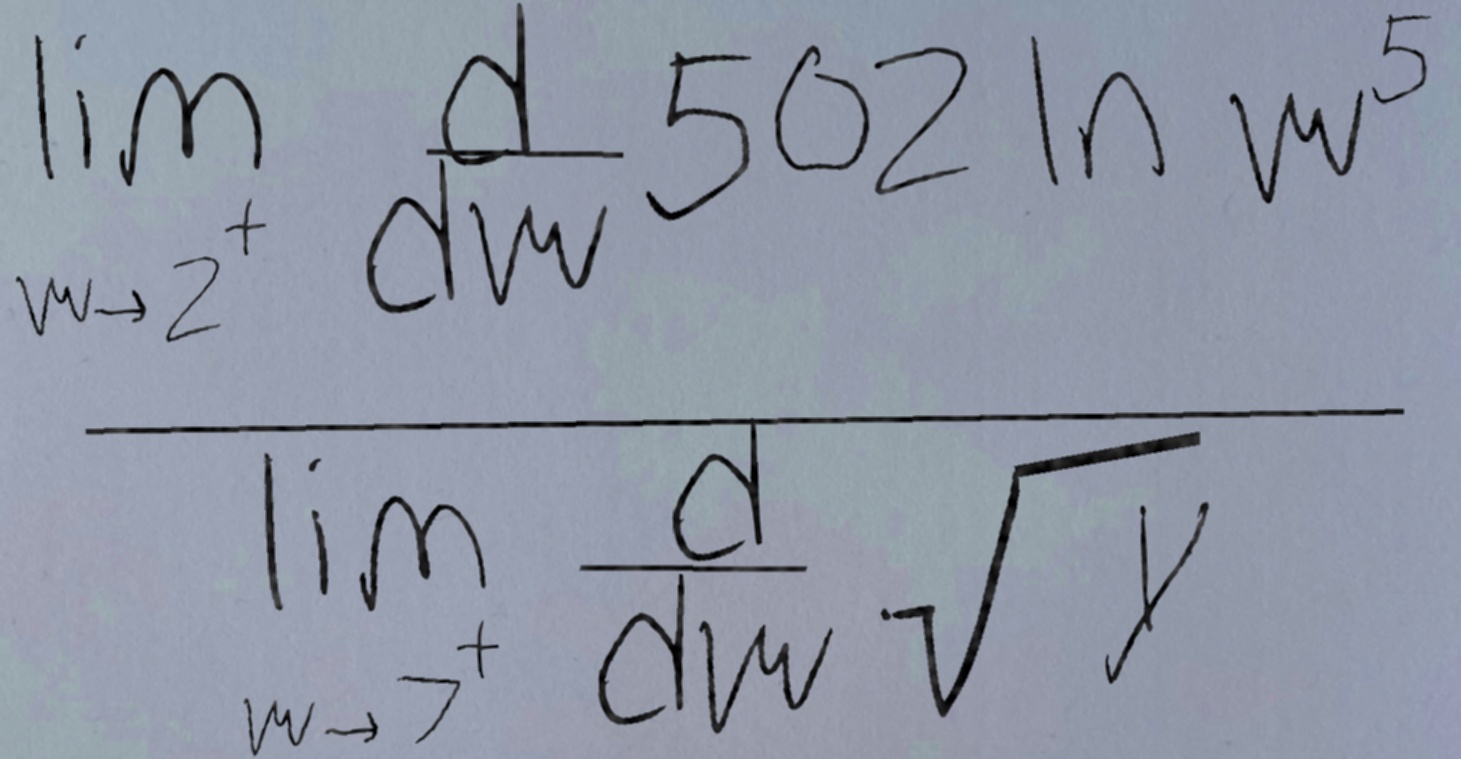 \frac{\lim_{w \to 2^+} \frac{d}{dw} 502 \ln w^5}{\lim_{w \to 7^+} \frac{d}{dw} \sqrt{y}}